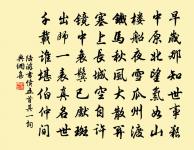 早歲那知世事艱
中原北望氣如山
樓船夜雪瓜州渡
鐵馬秋風大散關
塞上長城空自許
鏡中衰鬢已斑
出師一表真名世
千載誰堪伯仲間
陸游書憤五首其一詞
典網集